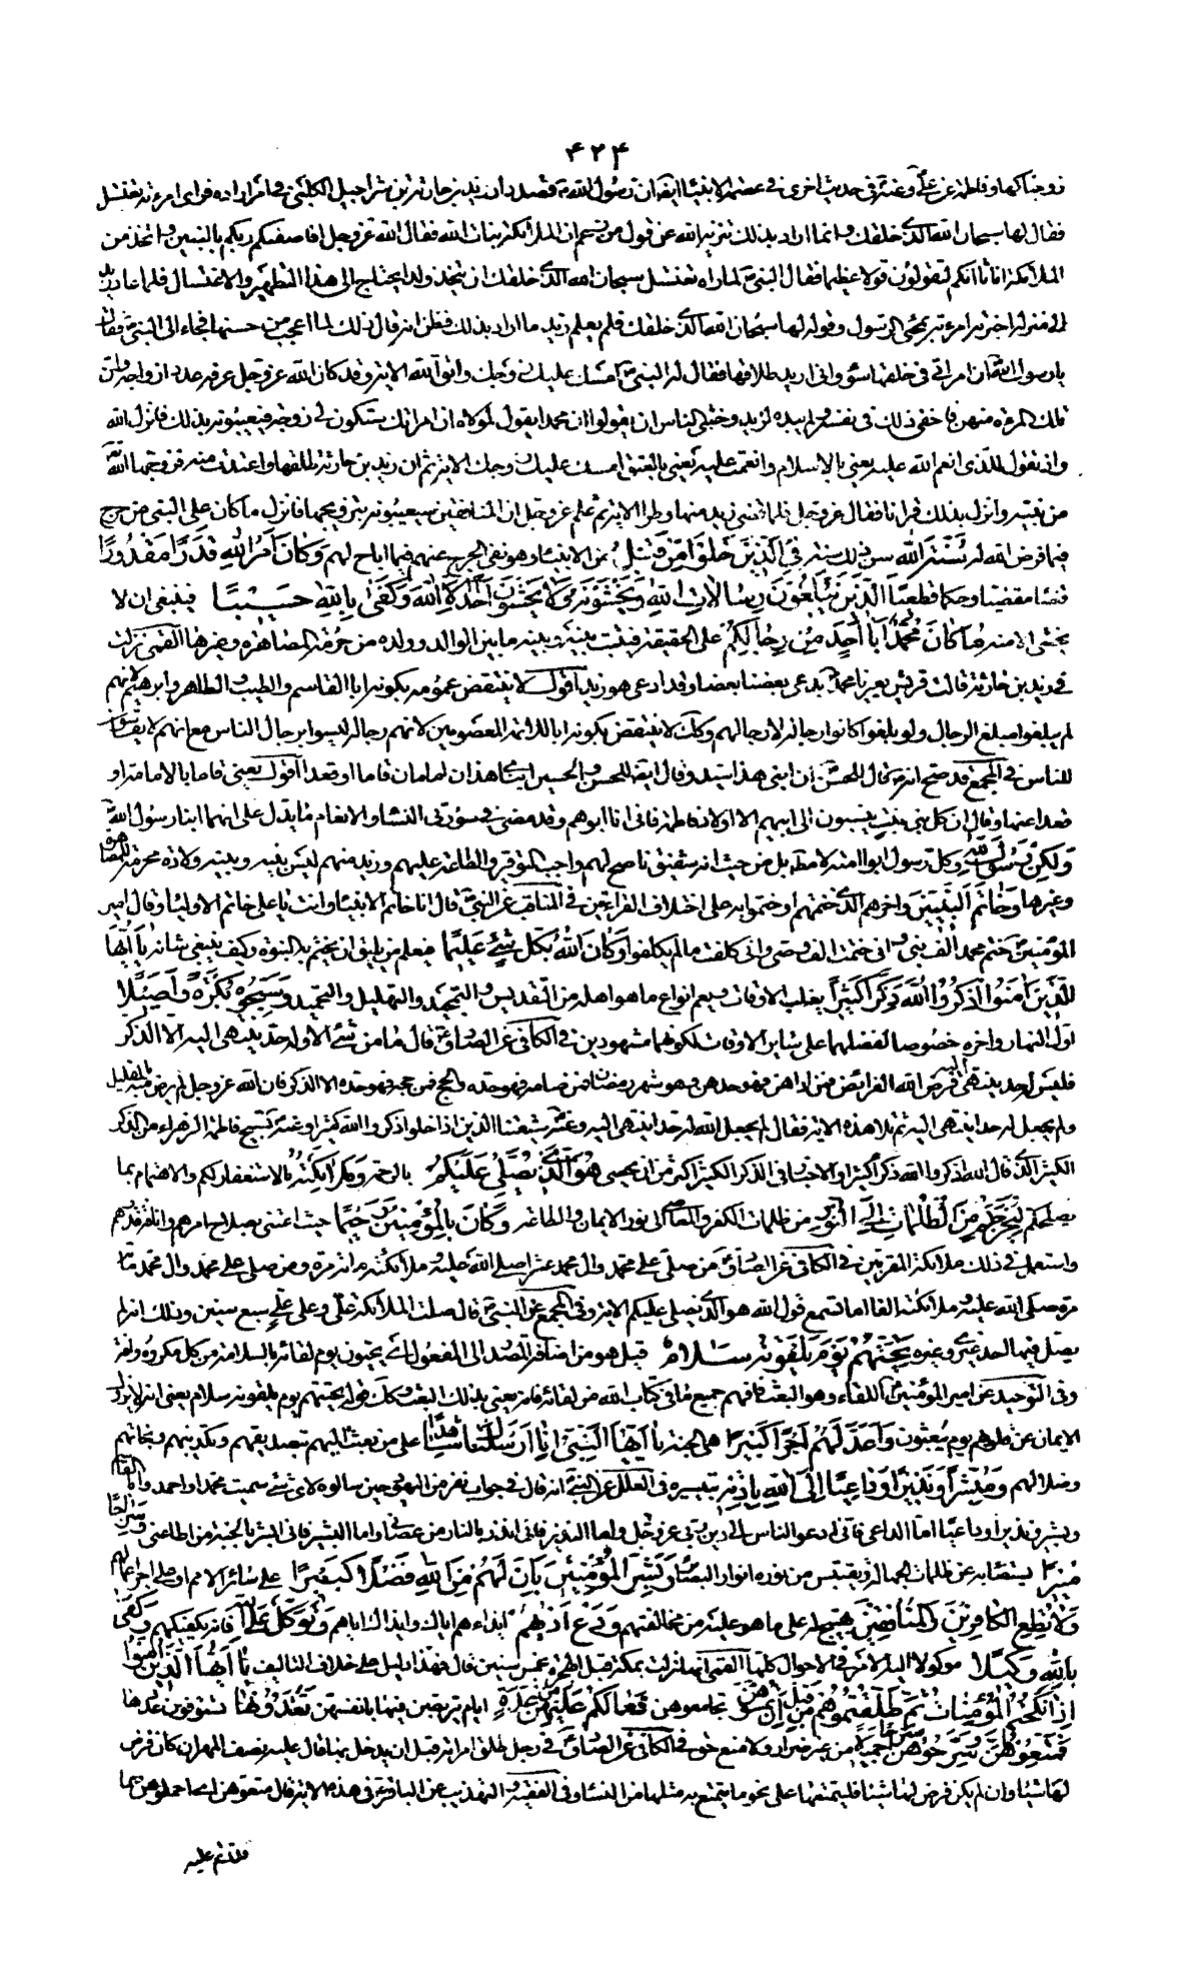 ۴۲۴
زوجناكها وفاطمة عن علي وعنه في حديث اخرى في عصمة الانبياء ايضا ان رسول الله قصد دار زيد بن حارثة بن شراحيل الكلبي في امر اراده فراى امرءته تغتسل
فقال لها سبحان الله الذي خلقك وانما اراد بذلك تنزيه الله عن قول من زعم ان الملائكة بنات الله فقال الله عز وجل افاصفيكم ربكم بالبنين واتخذ من
الملائكة اناثا انكم لتقولون قولا عظيما فقال النبي لما راها تغتسل سبحان الله الذي خلقك ان يتخذ ولدا يحتاج الى هذا التطهير والاغتسال فلما عاد زيد
الى منزله اخبرته امرءته بمجئ الرسول وقوله لها سبحان الله الذي خلقك فلم يعلم زيد ما اراد بذلك فظن انه قال ذلك لما اعجبه من حسنها فجاء الى النبي فقال
يا رسول الله ان امراتي في خلقها سوء واني اريد طلاقها فقال له النبي امسك عليك زوجك واتق الله الاية وقد كان الله عز وجل عرفه عدد ازواجه وان
تلك المرءة منهن فاخفى ذلك في نفسه ولم يبده لزيد وخشى الناس ان يقولوا ان محمدا يقول لمولاه ان امراتك ستكون لي زوجة فيعيبونه بذلك فانزل الله
واذ تقول للذي انعم الله عليه يعني بالاسلام وانعمت عليه يعني بالعتق امسك عليك زوجك الاية ثم ان زيد بن حارثة طلقها واعتدت منه فزوجها الله
من نبيه وانزل بذلك قرانا فقال عز وجل فلما قضى زيد منها وطرا الاية ثم علم عز وجل ان المنافقين سيعيبونه بتزويجها فانزل ما كان على النبي من حرج
فيما فرض الله له سُنَّةَ اللهِ سن ذلك سنة فِي الَّذِينَ خَلَوْا مِنْ قَبْلُ من الانبياء وهو نفي الحرج عنهم فيما اباح لهم وَكَانَ اَمْرُ اللهِ قَدَرًا مَقْدُورًا
قضاء مقضيا وحكما قطعيا اَلَّذِينَ يُبَلِّغُونَ رِسَالَاتِ اللهِ وَيَخْشَوْنَهُ وَلَا يَخْشَوْنَ اَحَدًا اِلَّا اللهَ وَكَفَى بِاللهِ حَسِيبًا فينبغي ان لا
يخشى الا منه مَا كَانَ مُحَمَّدٌ اَبَا اَحَدٍ مِنْ رِجَالِكُمْ على الحقيقة فيثبت بينه وبينه ما بين الوالد وولده من حرمة المصاهرة وغيرها القمي نزلت
في زيد بن حارثة قالت قريش يعيرنا محمد يدعي بعضنا بعضا وقد ادعى هو زيدا اقول لا ينتقض عمومه بكونه ابا القاسم والطيب والطاهر وابراهيم لانهم
لم يبلغوا مبلغ الرجال ولو بلغوا كانوا رجاله لا رجالهم وكذلك لا ينتقض بكونه ابا للائمة المعصومين لانهم رجاله ليسوا برجال الناس مع انهم لا يقاسون
للناس في المجمع قد صح انه قال للحسن ان ابني هذا سيد وقال ايضا للحسن والحسين ابناي هذان امامان قاما او قعدا اقول يعني قاما بالامامة او
قعدا عنها وقال ان كل بني بنت ينسبون الى ابيهم الا اولاد فاطمة فاني انا ابوهم وقد مضى في سورتي النساء والانعام ما يدل على انهما ابنا رسول الله
وَلٰكِنْ رَسُولَ اللهِ وكل رسول ابو امته لا مطلقا بل من حيث انه شفيق ناصح لهم واجب التوقير والطاعة عليهم وزيد منهم ليس بينه وبينه ولادة محرمة للمصاهرة
وغيرها وَخَاتَمَ النَّبِيِّينَ واخرهم الذي ختمهم او ختموا به على اختلاف القرائتين في المناقب عن النبي قال انا خاتم الانبياء وانت يا علي خاتم الاولياء وقال امير
المؤمنين ختم محمد الف نبي واني ختمت الف وصي واني كلفت ما لم يكلفوا وَكَانَ اللهُ بِكُلِّ شَيْءٍ عَلِيمًا فيعلم من يليق ان يختم به النبوة وكيف ينبغي شانه يَا اَيُّهَا
الَّذِينَ اٰمَنُوا اذْكُرُوا اللهَ ذِكْرًا كَثِيرًا يغلب الاوقات ويعم انواع ما هو اهله من التقديس والتمجيد والتهليل والتحميد وَسَبِّحُوهُ بُكْرَةً وَاَصِيلًا
اول النهار واخره خصوصا لفضلهما على ساير الاوقات لكونهما مشهودين في الكافي عن الصادق قال ما من شئ الا وله حد ينتهي اليه الا الذكر
فليس له حد ينتهي اليه فرض الله الفرائض فمن اداهن فهو حدهن وهو شهر رمضان فمن صامه فهو حده والحج فمن حج فهو حده الا الذكر فان الله عز وجل لم يرض منه بالقليل
ولم يجعل له حدا ينتهي اليه ثم تلا هذه الاية فقال لم يجعل الله له حدا ينتهي اليه وعنه شيعتنا الذين اذا خلوا ذكروا الله كثيرا وعنه تسبيح فاطمة الزهراء من الذكر
الكثير الذي قال الله اذكروا الله ذكرا كثيرا والاخبار في الذكر الكثير اكثر من ان يحصى هُوَ الَّذِي يُصَلِّي عَلَيْكُمْ بالرحمة وَمَلَائِكَتُهُ بالاستغفار لكم والاهتمام بما
يصلحكم لِيُخْرِجَكُمْ مِنَ الظُّلُمَاتِ اِلَى النُّورِ من ظلمات الكفر والمعاصي الى نور الايمان والطاعة وَكَانَ بِالْمُؤْمِنِينَ رَحِيمًا حيث اعتنى بصلاح امرهم وانافة قدرهم
واستعمل في ذلك ملائكته المقربين في الكافي عن الصادق من صلى على محمد وال محمد عشرا صلى الله عليه وملائكته مائة مرة ومن صلى على محمد وال محمد مائة
مرة صلى الله عليه وملائكته الفا اما تسمع قول الله هو الذي يصلي عليكم الاية وفي المجمع عن النبي قال صلت الملائكة علي وعلى علي سبع سنين وذلك انه لم
يصل فيها احد غيري وغيره تَحِيَّتُهُمْ يَوْمَ يَلْقَوْنَهُ سَلَامٌ قيل هو من اضافة المصدر الى المفعول اي يحيون يوم لقائه بالسلامة من كل مكروه وافة
وفي التوحيد عن امير المؤمنين اللقاء هو البعث فافهم جميع ما في كتاب الله من لقائه فانه يعني بذلك البعث وكذلك قوله تحيتهم يوم يلقونه سلام يعني انه لا يزول
الايمان عن قلوبهم يوم يبعثون وَاَعَدَّ لَهُمْ اَجْرًا كَرِيمًا هي الجنة يَا اَيُّهَا النَّبِيُّ اِنَّا اَرْسَلْنَاكَ شَاهِدًا على من بعثت اليهم بتصديقهم وتكذيبهم ونجاتهم
وضلالهم وَمُبَشِّرًا وَنَذِيرًا وَدَاعِيًا اِلَى اللهِ بِاِذْنِهِ بتيسيره في العلل عن النبي انه قال في جواب نفر من اليهود حين سالوه لاي شئ سميت محمدا واحمد وابا القاسم
وبشيرا ونذيرا وداعيا اما الداعي فاني ادعو الناس الى دين ربي عز وجل واما النذير فاني انذر بالنار من عصاني واما البشير فاني ابشر بالجنة من اطاعني وَسِرَاجًا
مُنِيرًا يستضاء به عن ظلمات الجهالة ويقتبس من نوره انوار البصائر وَبَشِّرِ الْمُؤْمِنِينَ بِاَنَّ لَهُمْ مِنَ اللهِ فَضْلًا كَبِيرًا على سائر الامم او على اجر اعمالهم
وَلَا تُطِعِ الْكَافِرِينَ وَالْمُنَافِقِينَ تهييج له على ما هو عليه من مخالفتهم وَدَعْ اَذٰيهُمْ ايذاءهم اياك او ايذاك اياهم وَتَوَكَّلْ عَلَى اللهِ فانه يكفيكهم وَكَفٰى
بِاللهِ وَكِيلًا موكولا اليه الامر في الاحوال كلها القمي انها نزلت بمكة قبل الهجرة بخمس سنين قال فهذا دليل على خلاف التاليف يَا اَيُّهَا الَّذِينَ اٰمَنُوا
اِذَا نَكَحْتُمُ الْمُؤْمِنَاتِ ثُمَّ طَلَّقْتُمُوهُنَّ مِنْ قَبْلِ اَنْ تَمَسُّوهُنَّ تجامعوهن فَمَا لَكُمْ عَلَيْهِنَّ مِنْ عِدَّةٍ ايام يتربصن فيها بانفسهن تَعْتَدُّونَهَا تستوفون عددها
فَمَتِّعُوهُنَّ وَسَرِّحُوهُنَّ سَرَاحًا جَمِيلًا من غير ضرار ولا منع حق في الكافي عن الصادق في رجل طلق امراته قبل ان يدخل بها قال عليه نصف المهر ان كان فرض
لها شيئا وان لم يكن فرض لها شيئا فليمتعها على نحو ما يتمتع به مثلها من النساء وفي الفقيه والتهذيب عن الباقر في هذه الاية قال متعوهن اي احملوهن بما
قدرتم عليه